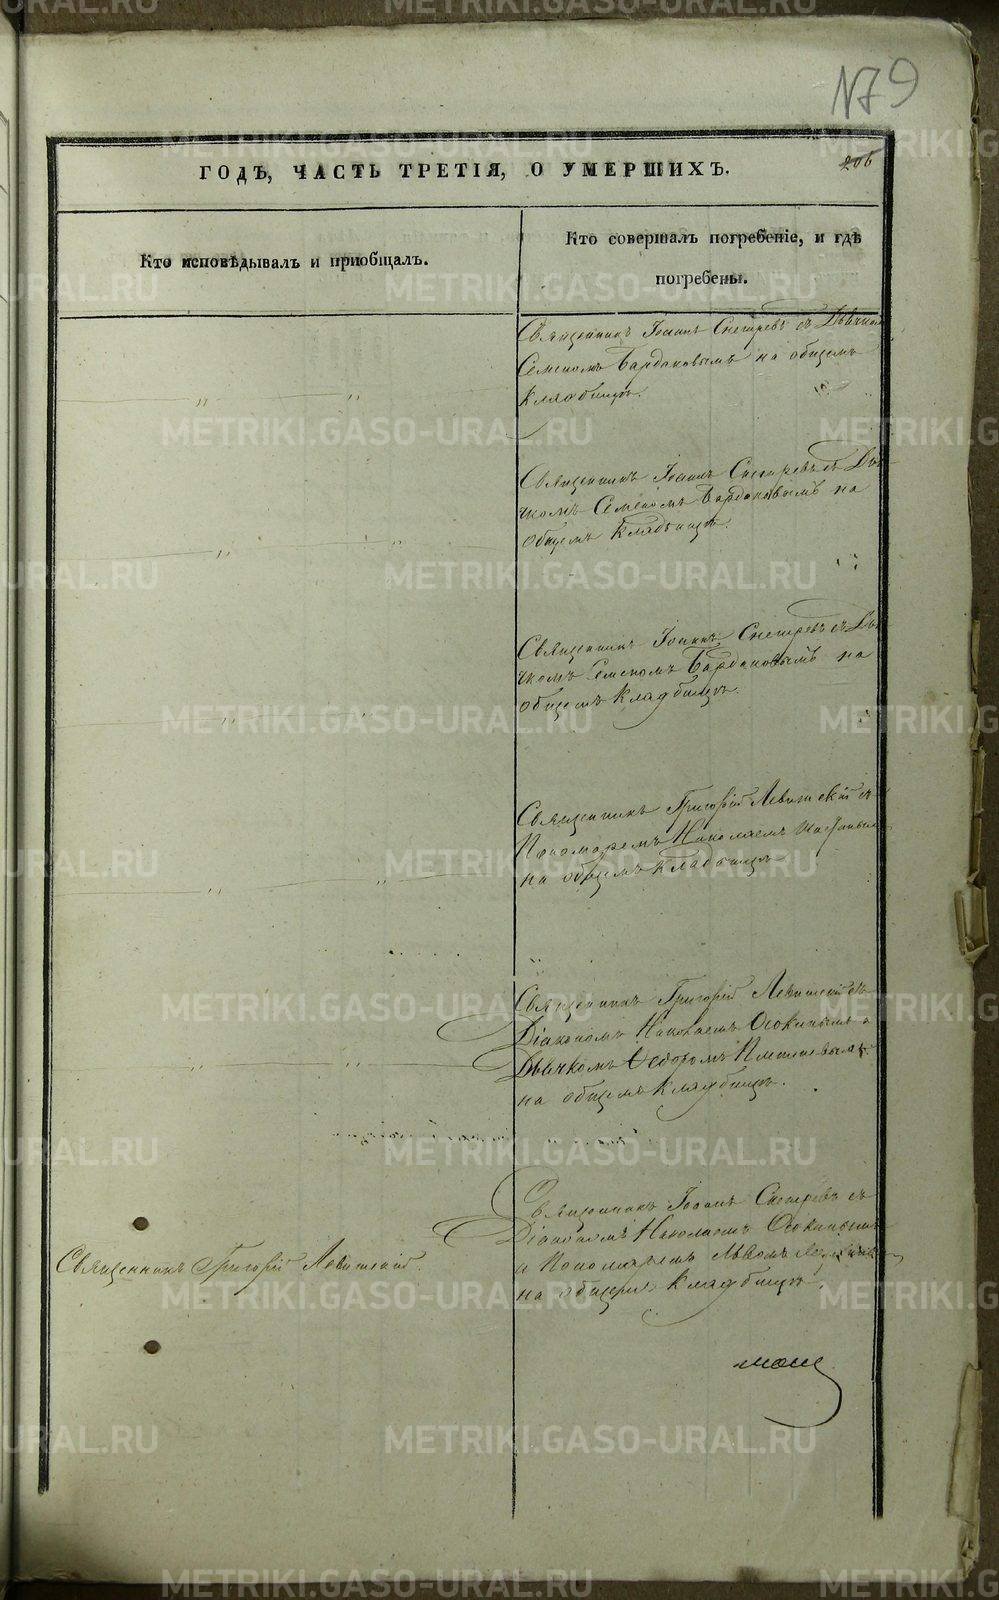 N79
206
ГОДЪ, ЧАСТЬ ТРЕТІЯ, О УМЕРШИХЪ.
Кто исповѣдывалъ и приобщалъ.
Кто совершалъ погребеніе, и гдѣ
погребены.
Священникъ Іоаннъ Снегиревъ съ Дьячком
Семеномъ Бардаковымъ на общемъ
Кладбищѣ.
Священникъ Іоаннъ Снегиревъ съ Дья
чкомъ Семеномъ Бардаковымъ на
общемъ Кладбищѣ.
Священникъ Іоаннъ Снегиревъ съ Дья
чкомъ Семеномъ Бардаковымъ на
общемъ Кладбищѣ.
Священникъ Григорій Левитскій съ
Пономаремъ Николаемъ
на общемъ Кладбищѣ
Священникъ Григорій Левитскій съ
Діакономъ Николаемъ Осокинымъ и
Дьячкомъ Федоромъ
на общемъ Кладбищѣ.
Священникъ Григорій Левитскій.
Священникъ Іоаннъ Снегиревъ съ
Діакономъ Николаемъ Осокинымъ
и Пономаремъ Львомъ
на общемъ Кладбищѣ.
METRIKI.GASO-URAL.RU